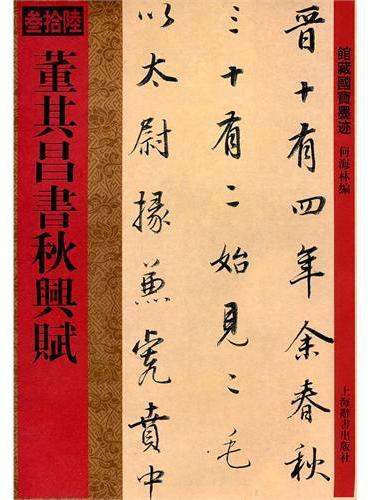 館藏國寶墨迹
何海林編
上海辭書出版社
晉十有四年余春秋
三十有二始見二毛
以太尉掾兼虎賁中
叁拾陸
董其昌書秋興賦